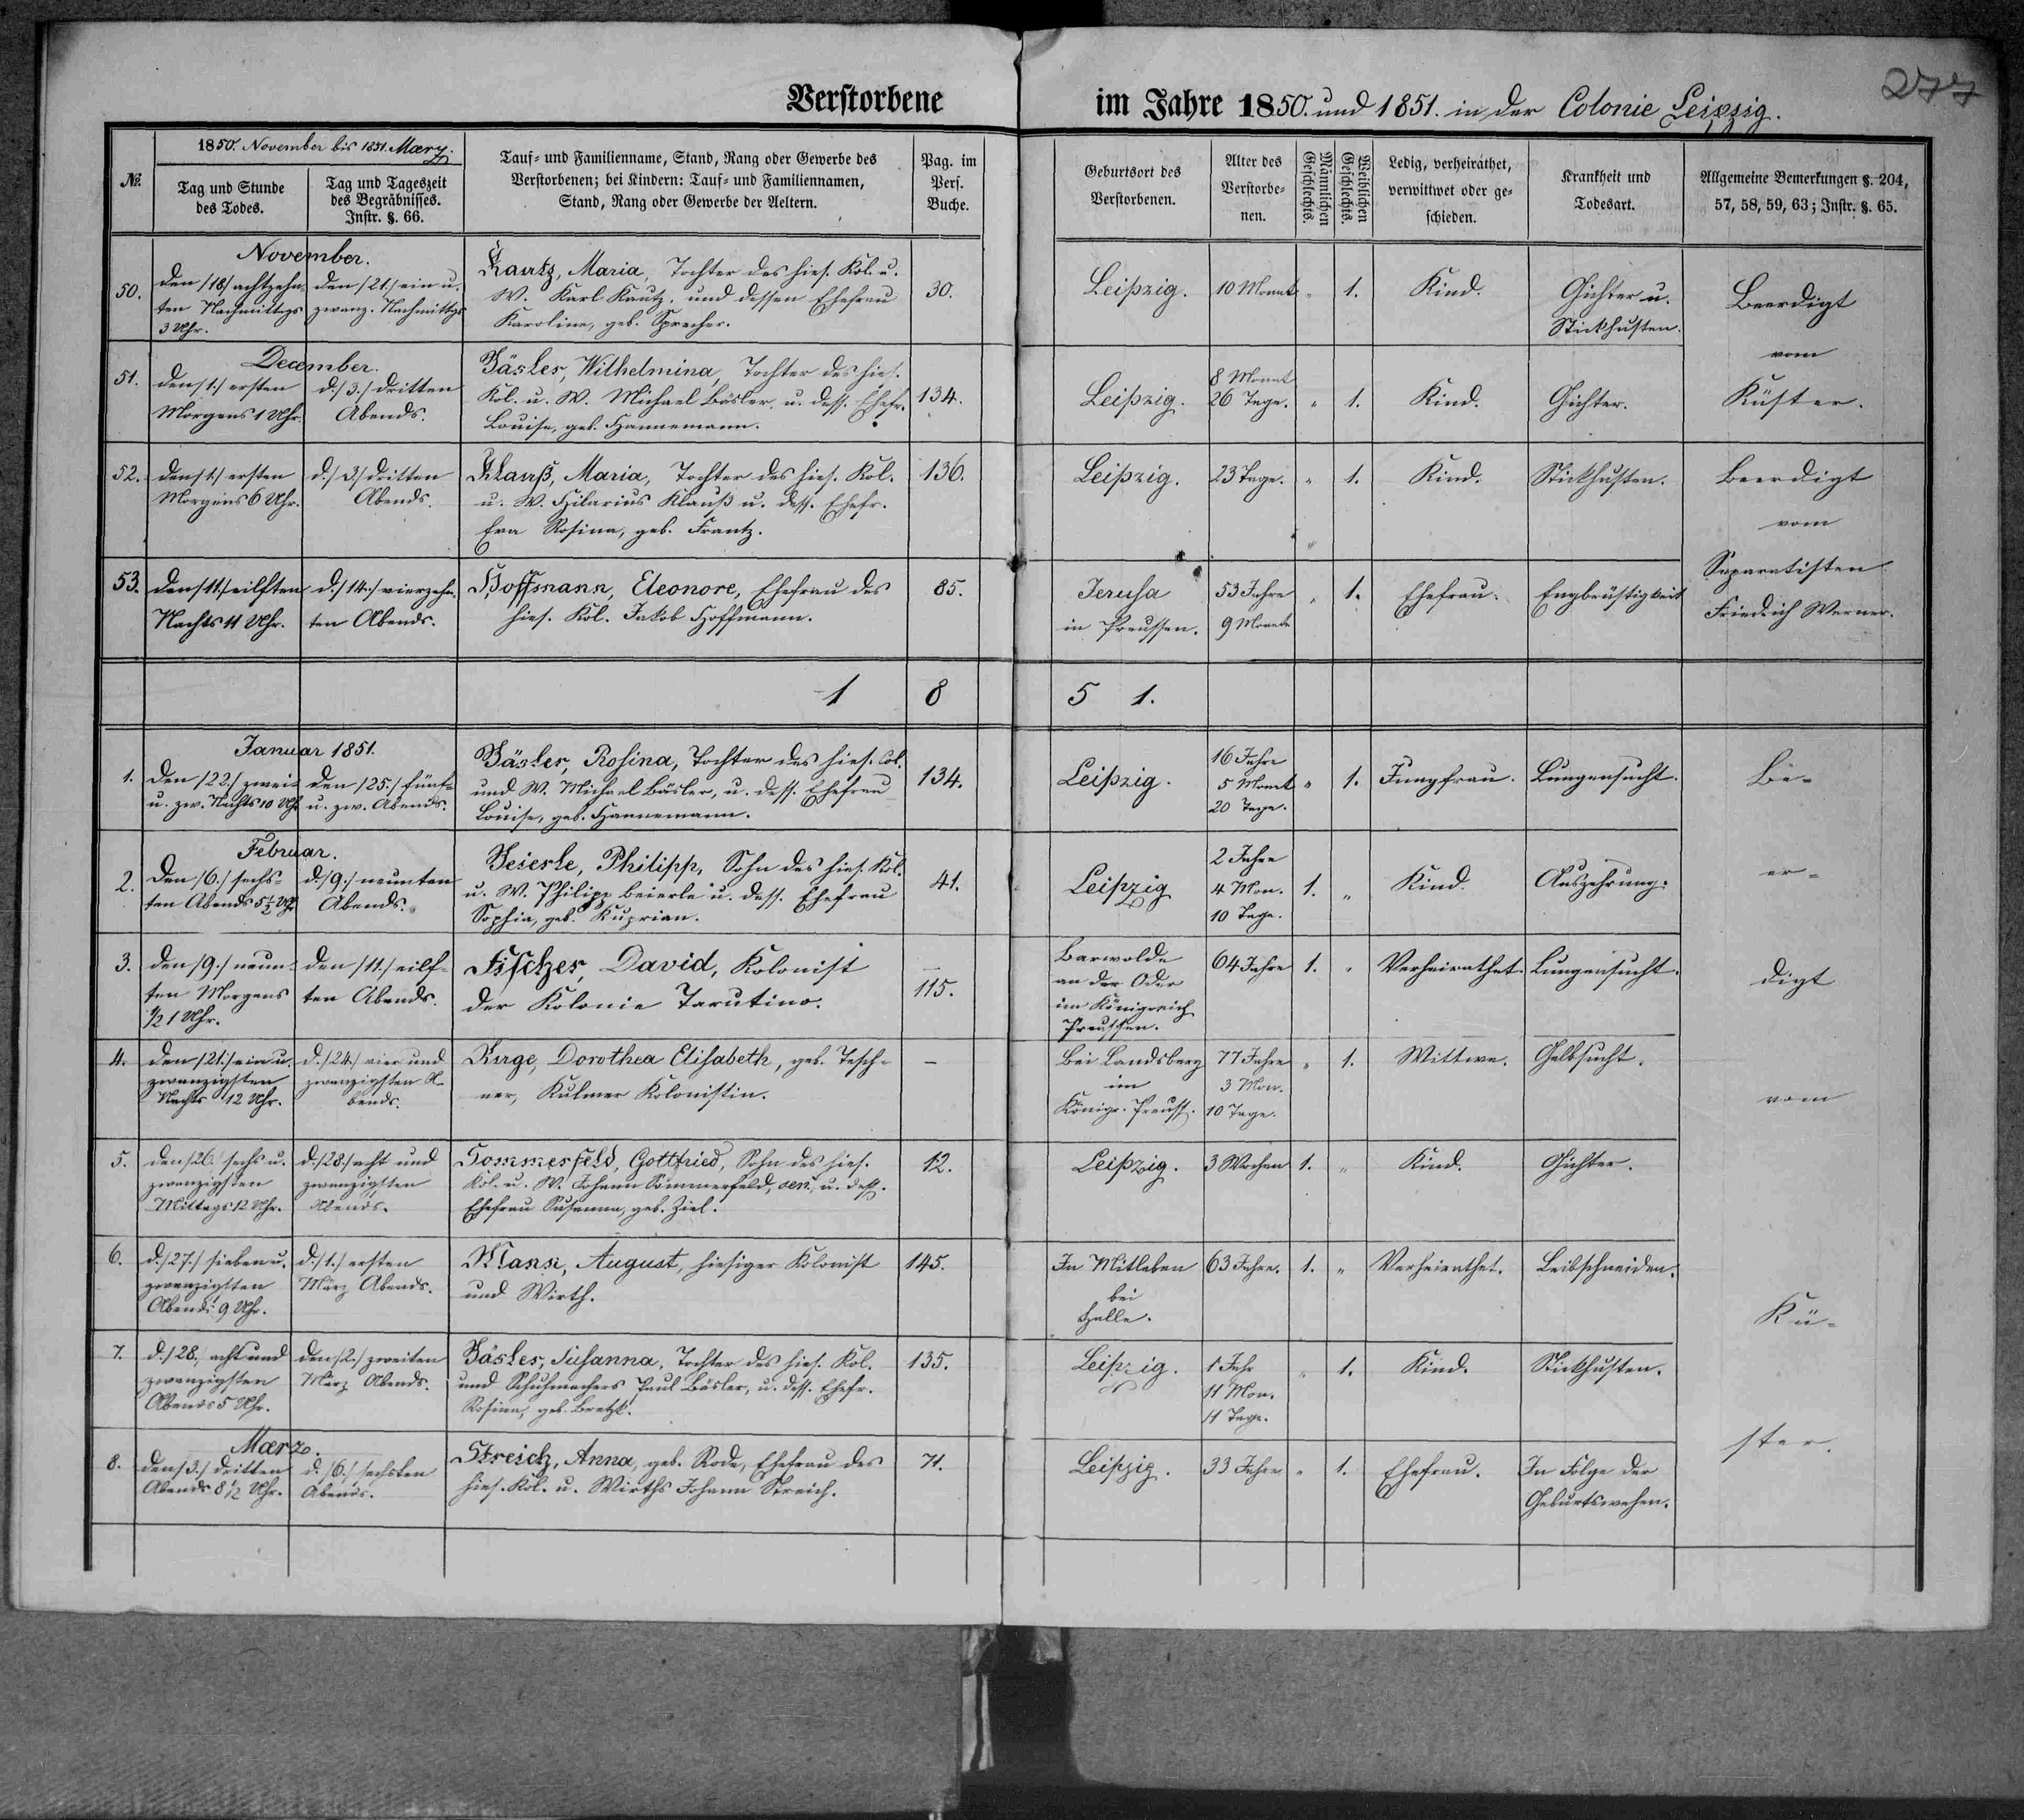 277
Verstorbene im Jahre 1850. und 1851. in der Colonie Leipzig.
№.
1850. November bis 1851. Maerz.
Tag und Stunde
des Todes.
Tag und Tageszeit
des Begräbnisses.
Instr. §. 66.
Tauf- und Familienname, Stand, Rang oder Gewerbe des
Verstorbenen; bei Kindern: Tauf- und Familiennamen,
Stand, Rang oder Gewerbe der Aeltern.
Pag. im
Pers.
Buche.
Geburtsort des
Verstorbenen.
Alter des
Verstorbe-
nen.
Männlichen
Geschlechts.
Weiblichen
Geschlechts.
Ledig, verheirathet,
verwittwet oder ge-
schieden.
Krankheit und
Todesart.
Allgemeine Bemerkungen §. 204,
57, 58, 59, 63; Instr. §. 65.
November.
50.
den /18/ achtzehn-
ten Nachmittags
3 Uhr.
den /21./ ein u.
zwanz. Nachmittgs
Kautz, Maria, Tochter des hies. Kol. u.
W. Karl Kautz, und dessen Ehefrau
Karoline, geb. Sprecher.
30.
Leipzig.
10 Monat
"
1.
Kind.
Gichter u.
Stickhusten.
Beerdigt
vom
Küster.
December.
51.
den /1./ ersten
Morgens 1 Uhr.
d. /3./ dritten
Abends.
Bäsler, Wilhelmina, Tochter des hies.
Kol. u. W. Michael Bäsler, u. dess. Ehefr.
Louise, geb. Hannemann.
134.
Leipzig.
8 Monat
26 Tage.
"
1.
Kind.
Gichter.
52.
den /1./ ersten
Morgens 6 Uhr.
d. /3/ dritten
Abends.
Klauß, Maria, Tochter des hies. Kol.
u. W. Hilarius Klauß u. dess. Ehefr.
Eva Rosina, geb. Frantz.
136.
Leipzig.
23 Tage.
"
1.
Kind.
Stickhusten.
Beerdigt
vom
Separatisten
Friedrich Werner.
53.
den /11./ eilften
Nachts 11 Uhr.
d. /14./ vierzehn-
ten Abends.
Hoffmann, Eleonore, Ehefrau des
hies. Kol. Jakob Hoffmann.
85.
Jerusa
in Preussen.
53 Jahre
9 Monate
"
1.
Ehefrau.
Engbrüstigkeit
1 8 5 1.
Januar 1851.
1.
den /22./ zwei
u. zw. Nachts 10 Uhr
den /25./ fünf-
u. zw. Abends.
Bäsler, Rosina, Tochter des hies. Col.
und W. Michael Bäsler, u. dess. Ehefrau
Louise, geb. Hannemann.
134.
Leipzig.
16 Jahre
5 Monat
20 Tage.
"
1.
Jungfrau.
Lungensucht.
Be-
er-
digt
vom
Kü-
ster.
Februar.
2.
den /6./ sechs-
ten Abends 5 1/2 Uhr
d. /9./ neunten
Abends.
Beierle, Philipp, Sohn des hies. Kol.
u. W. Philipp Beierle u. dess. Ehefrau
Sophia, geb. Kuprian.
41.
Leipzig
2 Jahre
4 Mon.
10 Tage.
1.
"
Kind.
Auszehrung.
3.
den /9./ neun-
ten Morgens
1/2 1 Uhr.
den /11./ eilf-
ten Abends.
Fischer, David, Kolonist
der Kolonie Tarutino.
115.
Barwolde
an der Oder
im Königreich
Preussen.
64 Jahre
1.
"
Verheirathet.
Lungensucht.
4.
den /21./ ein u.
zwanzigsten
Nachts 12 Uhr.
d. /24./ vier und
zwanzigsten A-
bends.
Kurge, Dorothea Elisabeth, geb. Tesch-
ner, Kulmer Kolonistin.
—
Bei Landsberg
im
Königr. Preuss.
77 Jahre
3 Mon.
10 Tage.
"
1.
Wittwe.
Gelbsucht.
5.
den /26./ sechs u.
zwanzigsten
Mittags 12 Uhr.
d. /28./ acht und
zwanzigsten
Abends.
Sommerfeld, Gottfried, Sohn des hies.
Kol. u. W. Johann Sommerfeld, sen., u. dess.
Ehefrau Susanna, geb. Ziel.
12.
Leipzig.
3 Wochen
1.
"
Kind.
Gichter.
6.
d. /27./ sieben u.
zwanzigsten
Abends 9 Uhr.
d. /1./ ersten
März Abends.
August, hiesiger Kolonist
und Wirth.
145.
In Mitleben
bei
Halle.
63 Jahre.
1.
"
Verheirathet.
Leibschneiden.
7.
d. /28./ acht und
zwanzigsten
Abends 5 Uhr.
den /2./ zweiten
März Abends.
Bäsler, Susanna, Tochter des hies. Kol.
und Schuhmachers Paul Bäsler, u. dess. Ehefr.
Rosina, geb.
135.
Leipzig.
1 Jahr
11 Mon.
11 Tage.
"
1.
Kind.
Stickhusten.
Maerz.
8.
den /3./ dritten
Abends 8 1/2 Uhr.
d. /6./ sechsten
Abends.
Streich, Anna, geb. Rode, Ehefrau des
hies. Kol. u. Wirths Johann Streich.
71.
Leipzig.
33 Jahre
"
1.
Ehefrau.
In Folge der
Geburtswehen.